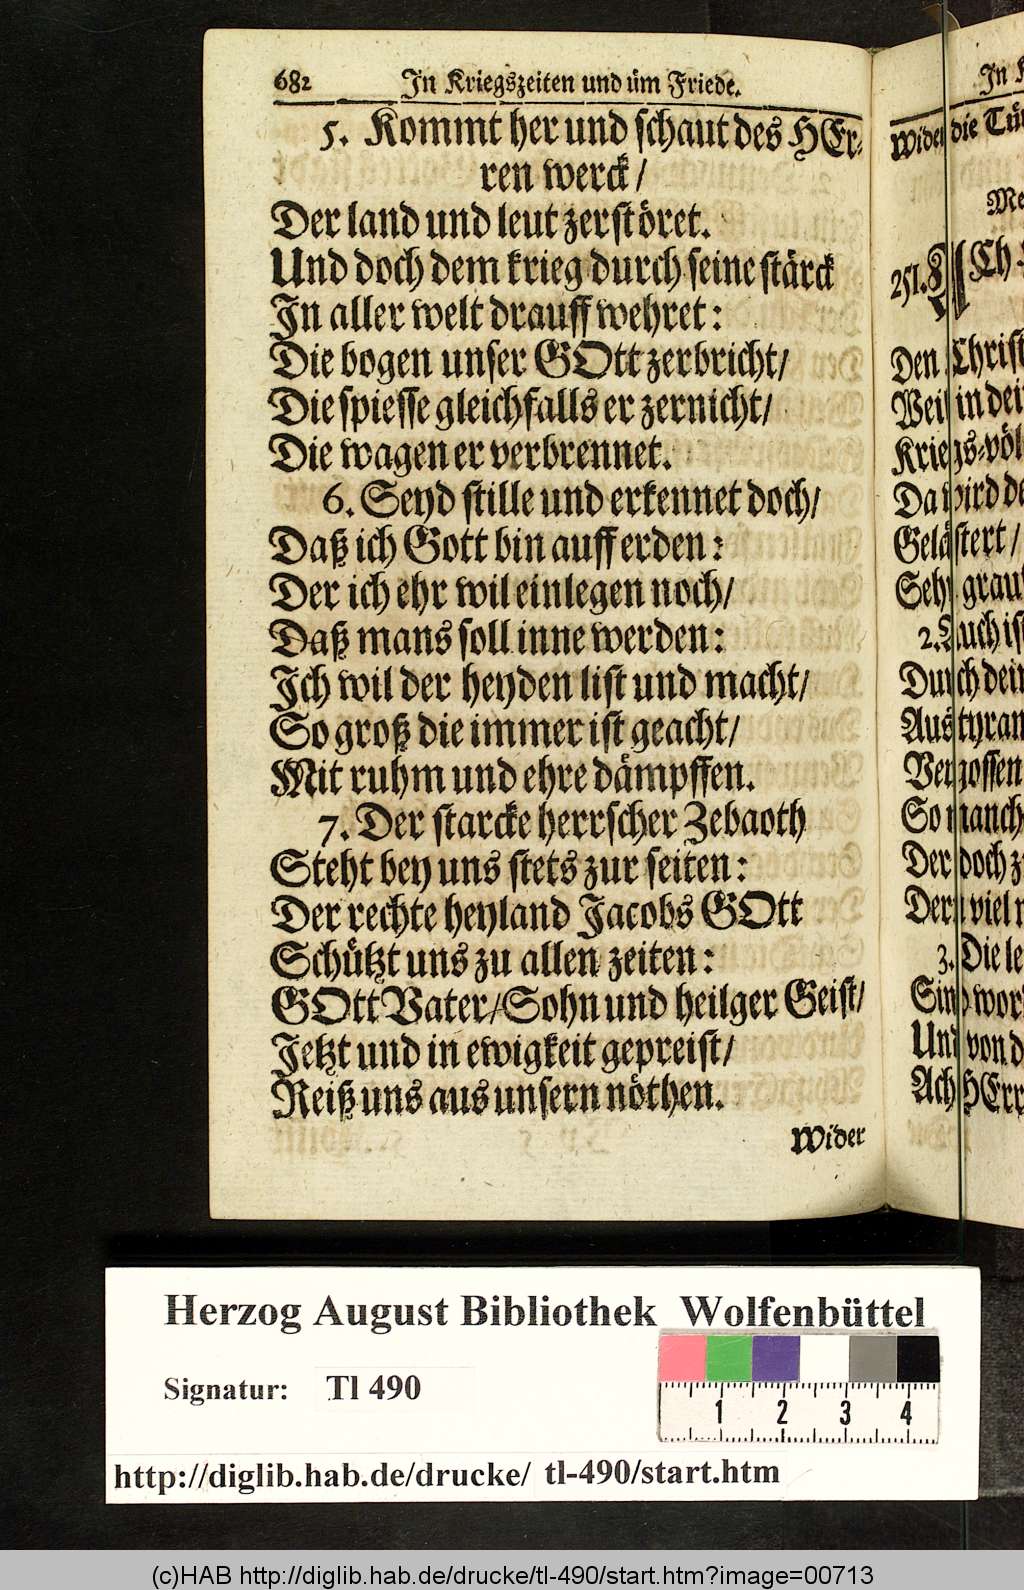 682 In Kriegszeiten und üm Friede.
5. Kommt her und schaut des HEr-
ren werck/
Der land und leut zerstöret.
Und doch dem krieg durch seine stärck
In aller welt drauff wehret:
Die bogen unser GOtt zerbricht/
Die spiesse gleichfalls er zernicht/
Die wagen er verbrennet.
6. Seyd stille und erkennet doch/
Daß ich Gott bin auff erden:
Der ich ehr wil einlegen noch/
Daß mans soll inne werden:
Ich wil der heyden list und macht/
So groß die immer ist geacht/
Mit ruhm und ehre dämpffen.
7. Der starcke herrscher Zebaoth
Steht bey uns stets zur seiten:
Der rechte heyland Jacobs GOtt
Schützt uns zu allen zeiten:
GOtt Vater/Sohn und heilger Geist/
Jetzt und in ewigkeit gepreist/
Reiß uns aus unsern nöthen.
Wider
In
Wider die
251. ACh
Den Christ
Weil in
Kriegs-
Da wird
Gelästert/
Sehr
2. Auch ist
Durch
Aus
Vergossen
So manch
Der doch
Dern viel
3. Die
Sind
Und von
Ach HErr
Herzog August Bibliothek Wolfenbüttel
Signatur: Tl 490
1 2 3 4
http://diglib.hab.de/drucke/ tl-490/start.htm
(c)HAB http://diglib.hab.de/drucke/tl-490/start.htm?image=00713